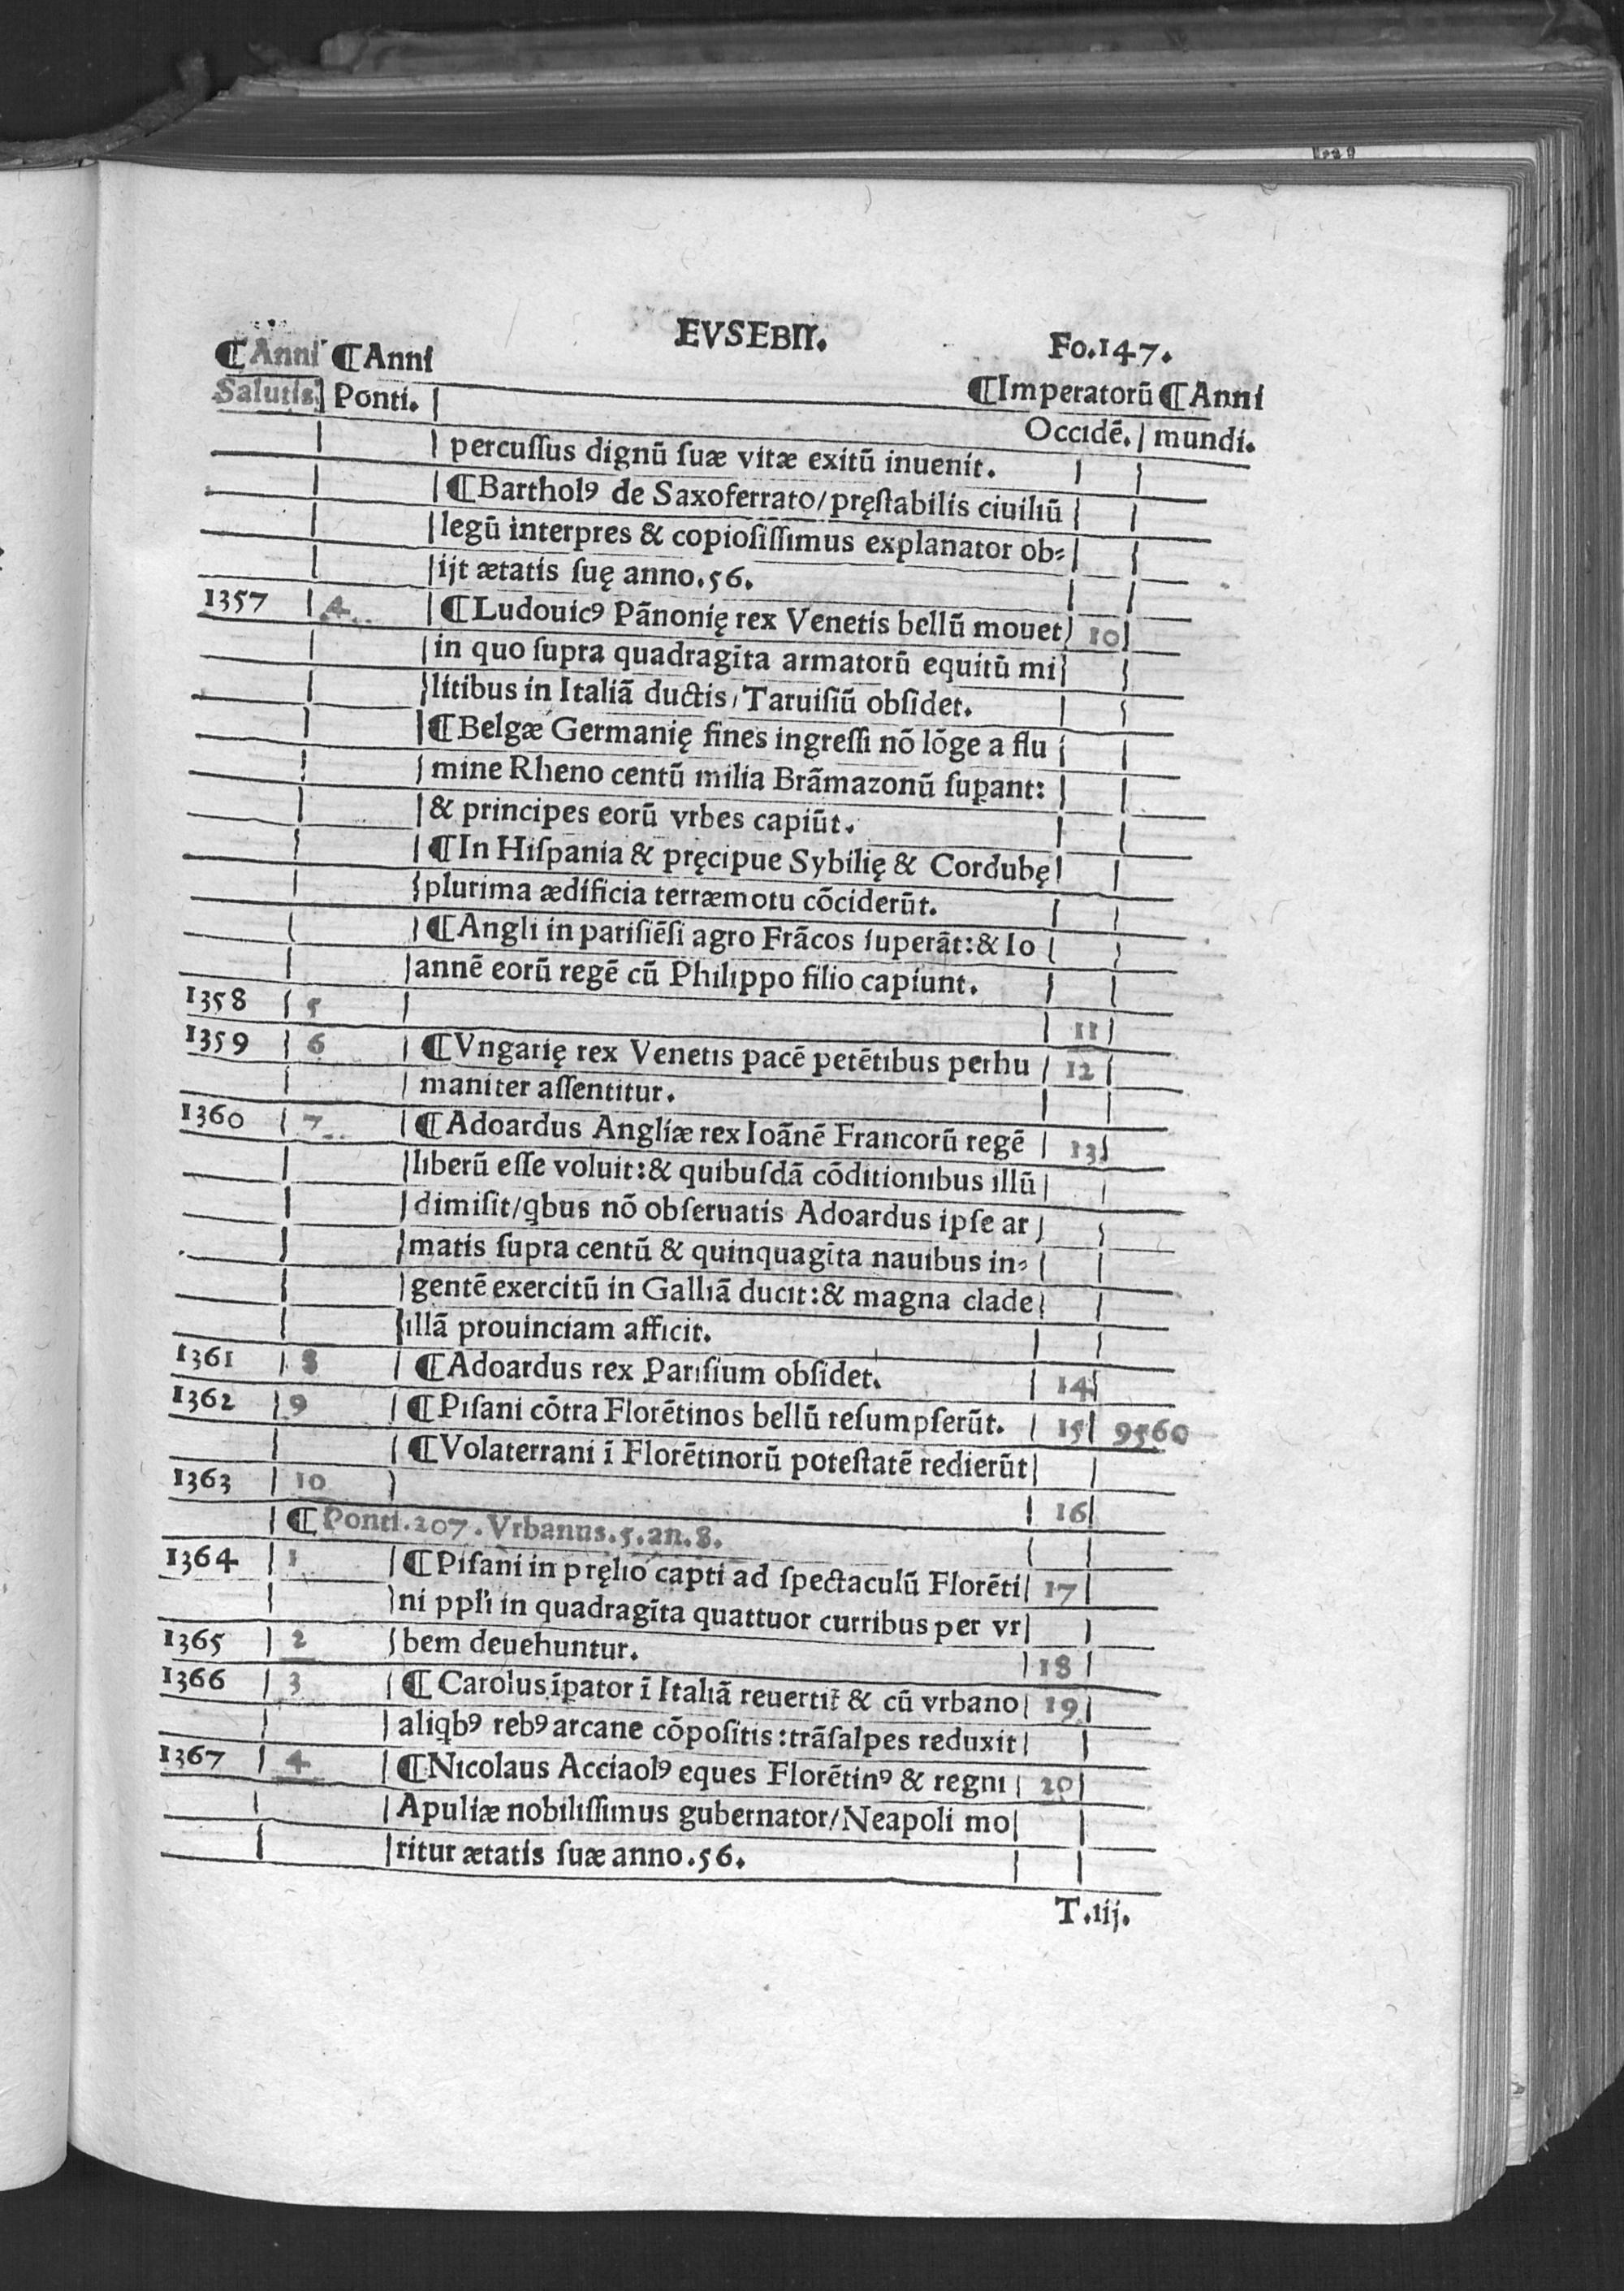 EVSEBII.
Fo.147.
¶Anni ¶Anni ¶Imperatorũ ¶Anni
Salutis. Ponti. Occidẽ. mundi.
percuſſus dignũ ſuæ vitæ exitũ inuenit.
¶Bartholꝰ de Saxoferrato/pręſtabilis ciuiliũ
legũ interpres & copioſiſſimus explanator ob⸗
ijt ætatis ſuę anno.56.
1357 4 ¶Ludouicꝰ Pãnonię rex Venetis bellũ mouet 10
in quo ſupra quadragĩta armatorũ equitũ mi
litibus in Italiã ductis/Taruiſiũ obſidet.
¶Belgæ Germanię fines ingreſſi nõ lõge a flu
mine Rheno centũ milia Brãmazonũ ſuꝑant:
& principes eorũ vrbes capiũt.
¶In Hiſpania & pręcipue Sybilię & Cordubę
plurima ædificia terræmotu cõciderũt.
¶Angli in pariſiẽſi agro Frãcos ſuperãt:& Io
annẽ eorũ regẽ cũ Philippo filio capiunt.
1358 5 11
1359 6 ¶Vngarię rex Venetis pacẽ petẽtibus perhu 12
maniter aſſentitur.
1360 7 ¶Adoardus Angliæ rex Ioãnẽ Francorũ regẽ 13
liberũ eſſe voluit:& quibuſdã cõditionibus illũ
dimiſit/ꝗbus nõ obſeruatis Adoardus ipſe ar
matis ſupra centũ & quinquagĩta nauibus in⸗
gentẽ exercitũ in Galliã ducit:& magna clade
illã prouinciam afficit.
1361 8 ¶Adoardus rex Pariſium obſidet. 14
1362 9 ¶Piſani cõtra Florẽtinos bellũ reſumpſerũt. 15 9560
¶Volaterrani ĩ Florẽtinorũ poteſtatẽ redierũt
1363 10 16
¶Ponti.207.Vrbanus.5.an.8.
1364 1 ¶Piſani in pręlio capti ad ſpectaculũ Florẽti 17
ni ppl'i in quadragĩta quattuor curribus per vr
1365 2 bem deuehuntur. 18
1366 3 ¶Carolus ĩꝑator ĩ Italiã reuertit̃ & cũ vrbano 19
aliꝗbꝰ rebꝰ arcane cõpoſitis:trãſalpes reduxit
1367 4 ¶Nicolaus Acciaolꝰ eques Florẽtinꝰ & regni 20
Apuliæ nobiliſſimus gubernator/Neapoli mo
ritur ætatis ſuæ anno.56.
T.iij.